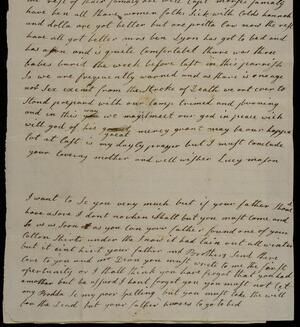 the rest of their family are well Capt moses family
have ben all there women folks Sick with Colds hannah
and dolla are got better but are pretty low now the rest
have all got better mrs ben Lyon has got to bed and
has a son and is quite Comfortabel there was three
babes buried the week before last in this
So we are frequently warned and as there is no age
nor Sex exemt from the Stroke of Death we out ever to
Stand prepared with our Lamps trimed and burning
and in this way we may meet our god in peace wich
will god of his great mercy grant may be our happy
lot at last is my dayly prayer but I must conclude
your loveing mother and well wisher Lucy mason
I want to Se you very much but if your father
have a Sore I dont now when I Shall but you must come and
Se us as Soon as you can your father found one of your
Cotten Shirts under the Snow it had lain out all winter
but it aint hurt your father and Brothers Send there
love to you and mr Dean you must write to me the first
opertunity or I shall think you have forgot that you had
a mother but be asured I hant forgot you you must not let
any Boddy Se my poor Spelling but you must take the will
for the Deed but your father to go to bed